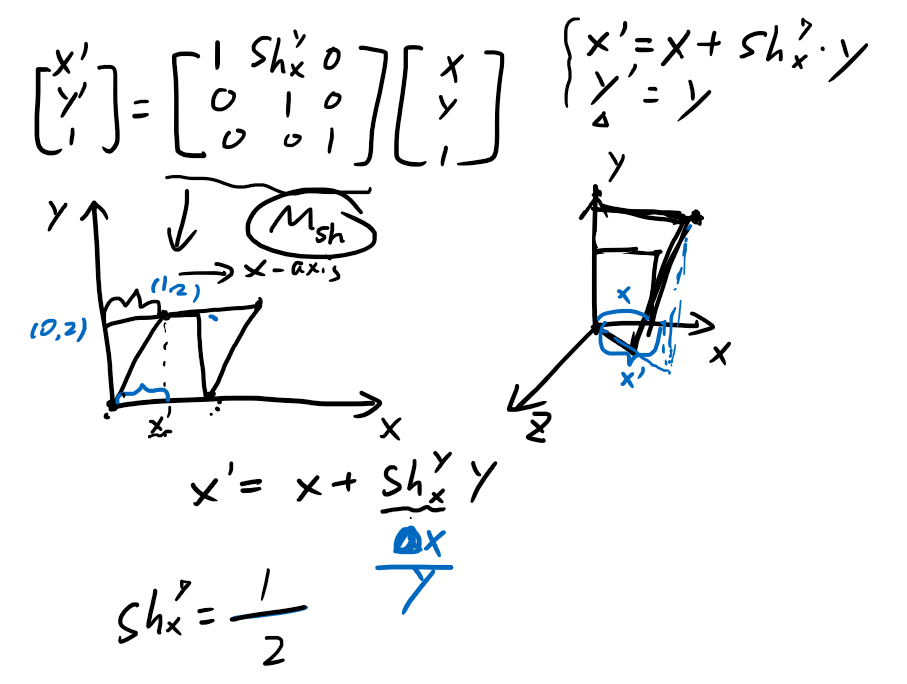 [x' y' 1] = [1 sh_x^y 0
0 1 0
0 0 1] [x y 1]
{ x' = x + sh_x^y · y
y' = y
M_sh
→ x-axis
Y
(1,2)
(0,2)
x'
X
Y
x
X
x'
Z
x' = x + sh_x^y y
Δx
y
sh_x^y = 1
2